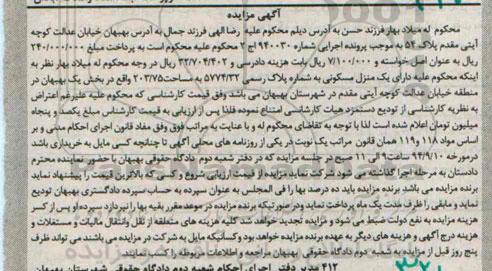 آگهی مزایده
محکوم له میلاد بهار فرزند حسن به آدرس دیلم محکوم علیه رضا الهی فرزند جمال به آدرس بهبهان خیابان عدالت کوچه
آیتی مقدم پلاک ۵۴ به موجب پرونده اجرایی شماره ۹۴۰۰۳۰ اج ۲ محکوم علیه محکوم است به پرداخت مبلغ ۲۴۰/۰۰۰/۰۰۰
ریال به عنوان اصل خواسته و ۷/۱۰۰/۰۰۰ ریال بابت هزینه دادرسی و ۳۲/۷۰۴/۴۰۲ ریال در وجه محکوم له میلاد بهار نظر به
اینکه محکوم علیه دارای یک منزل مسکونی به شماره پلاک رسمی ۵۷۷۴/۳۲ به مساحت ۲۰۳/۷۵ واقع در بخش یک بهبهان در
منطقه خیابان عدالت کوچه آیتی مقدم در شهرستان بهبهان می باشد وفق قیمت کارشناسی که محکوم علیه علیرغم اعتراض
به نظریه کارشناسی از تودیع دستمزد هیات کارشناسی امتناع نموده فلذا پس از ارزیابی به قیمت کارشناس مبلغ یکصد و پنجاه
میلیون تومان اعلام شده است لذا با توجه به تقاضای محکوم له و با عنایت به مراتب فوق وفق مفاد قانون اجرای احکام مدنی و بر
اساس مواد ۱۱۸ و ۱۱۹ همان قانون مراتب یک نوبت در یکی از روزنامه های محلی آگهی تا چنانچه کسی مایل به خریداری باشد
در مورخه ۹۴/۹/۱۰ ساعت ۹ الی ۱۱ صبح در جلسه مزایده که در دفتر شعبه دوم دادگاه حقوقی بهبهان با حضور نماینده محترم
دادستان به مرحله اجرا گذاشته می شود شرکت نماید مزایده از قیمت ارزیابی شروع و کسی که بالاترین قیمت را پیشنهاد نماید
برنده مزایده می باشد برنده مزایده باید ده درصد بها را فی المجلس به عنوان سپرده به حساب سپرده دادگستری بهبهان تودیع
نماید و مابقی را ظرف مدت یک ماه پرداخت نماید و در صورتیکه برنده مزایده در موعد مقرر بقیه بها را نپردازد سپرده او پس از کسر
هزینه مزایده به نفع دولت ضبط می شود و مزایده تجدید خواهد شد کلیه هزینه های متعلقه از نقل وانتقال مالیات و مستغلات و
هزینه درج آگهی و هزینه های دیگر به عهده برنده مزایده خواهد بود و کسانیکه مایل به شرکت در مزایده می باشند می توانند ظرف
پنج روز قبل از مزایده به شعبه دوم دادگاه حقوقی بهبهان مراجعه و اطلاعات مربوطه را کسب نمایند
۴۱۲ مدیر دفتر اجرای احکام شعبه دوم دادگاه حقوقی شهرستان بهبهان